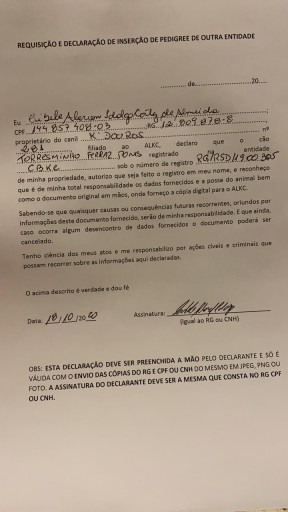 REQUISIÇÃO E DECLARAÇÃO DE INSERÇÃO DE PEDIGREE DE OUTRA ENTIDADE
............., ...... de.............................20.....
Eu,
CPF 144 857 408-03 RG 12.809 878-8
proprietário do canil K'DOUROS nº
281 filiado ao ALKC, declaro que o cão
TORRESMINHO FERRAZ PONS registrado entidade
CBKC sob o número de registro RG/RSD/19.00305
de minha propriedade, autorizo que seja feito o registro em meu nome, e reconheço
que é de minha total responsabilidade os dados fornecidos e a posse do animal bem
como o documento original em mãos, onde forneço a cópia digital para o ALKC.
Sabendo-se que quaisquer causas ou consequências futuras recorrentes, oriundos por
informações deste documento fornecido, serão de minha responsabilidade. E que ainda,
caso ocorra algum desencontro de dados fornecidos o documento poderá ser
cancelado.
Tenho ciência dos meus atos e me responsabilizo por ações cíveis e criminais que
possam recorrer sobre as informações aqui declaradas.
O acima descrito é verdade e dou fé
Data: 18/10/2020 Assinatura:
(igual ao RG ou CNH)
OBS: ESTA DECLARAÇÃO DEVE SER PREENCHIDA A MÃO PELO DECLARANTE E SÓ É
VÁLIDA COM O ENVIO DAS CÓPIAS DO RG E CPF OU CNH DO MESMO EM JPEG, PNG OU
FOTO. A ASSINATURA DO DECLARANTE DEVE SER A MESMA QUE CONSTA NO RG CPF
OU CNH.